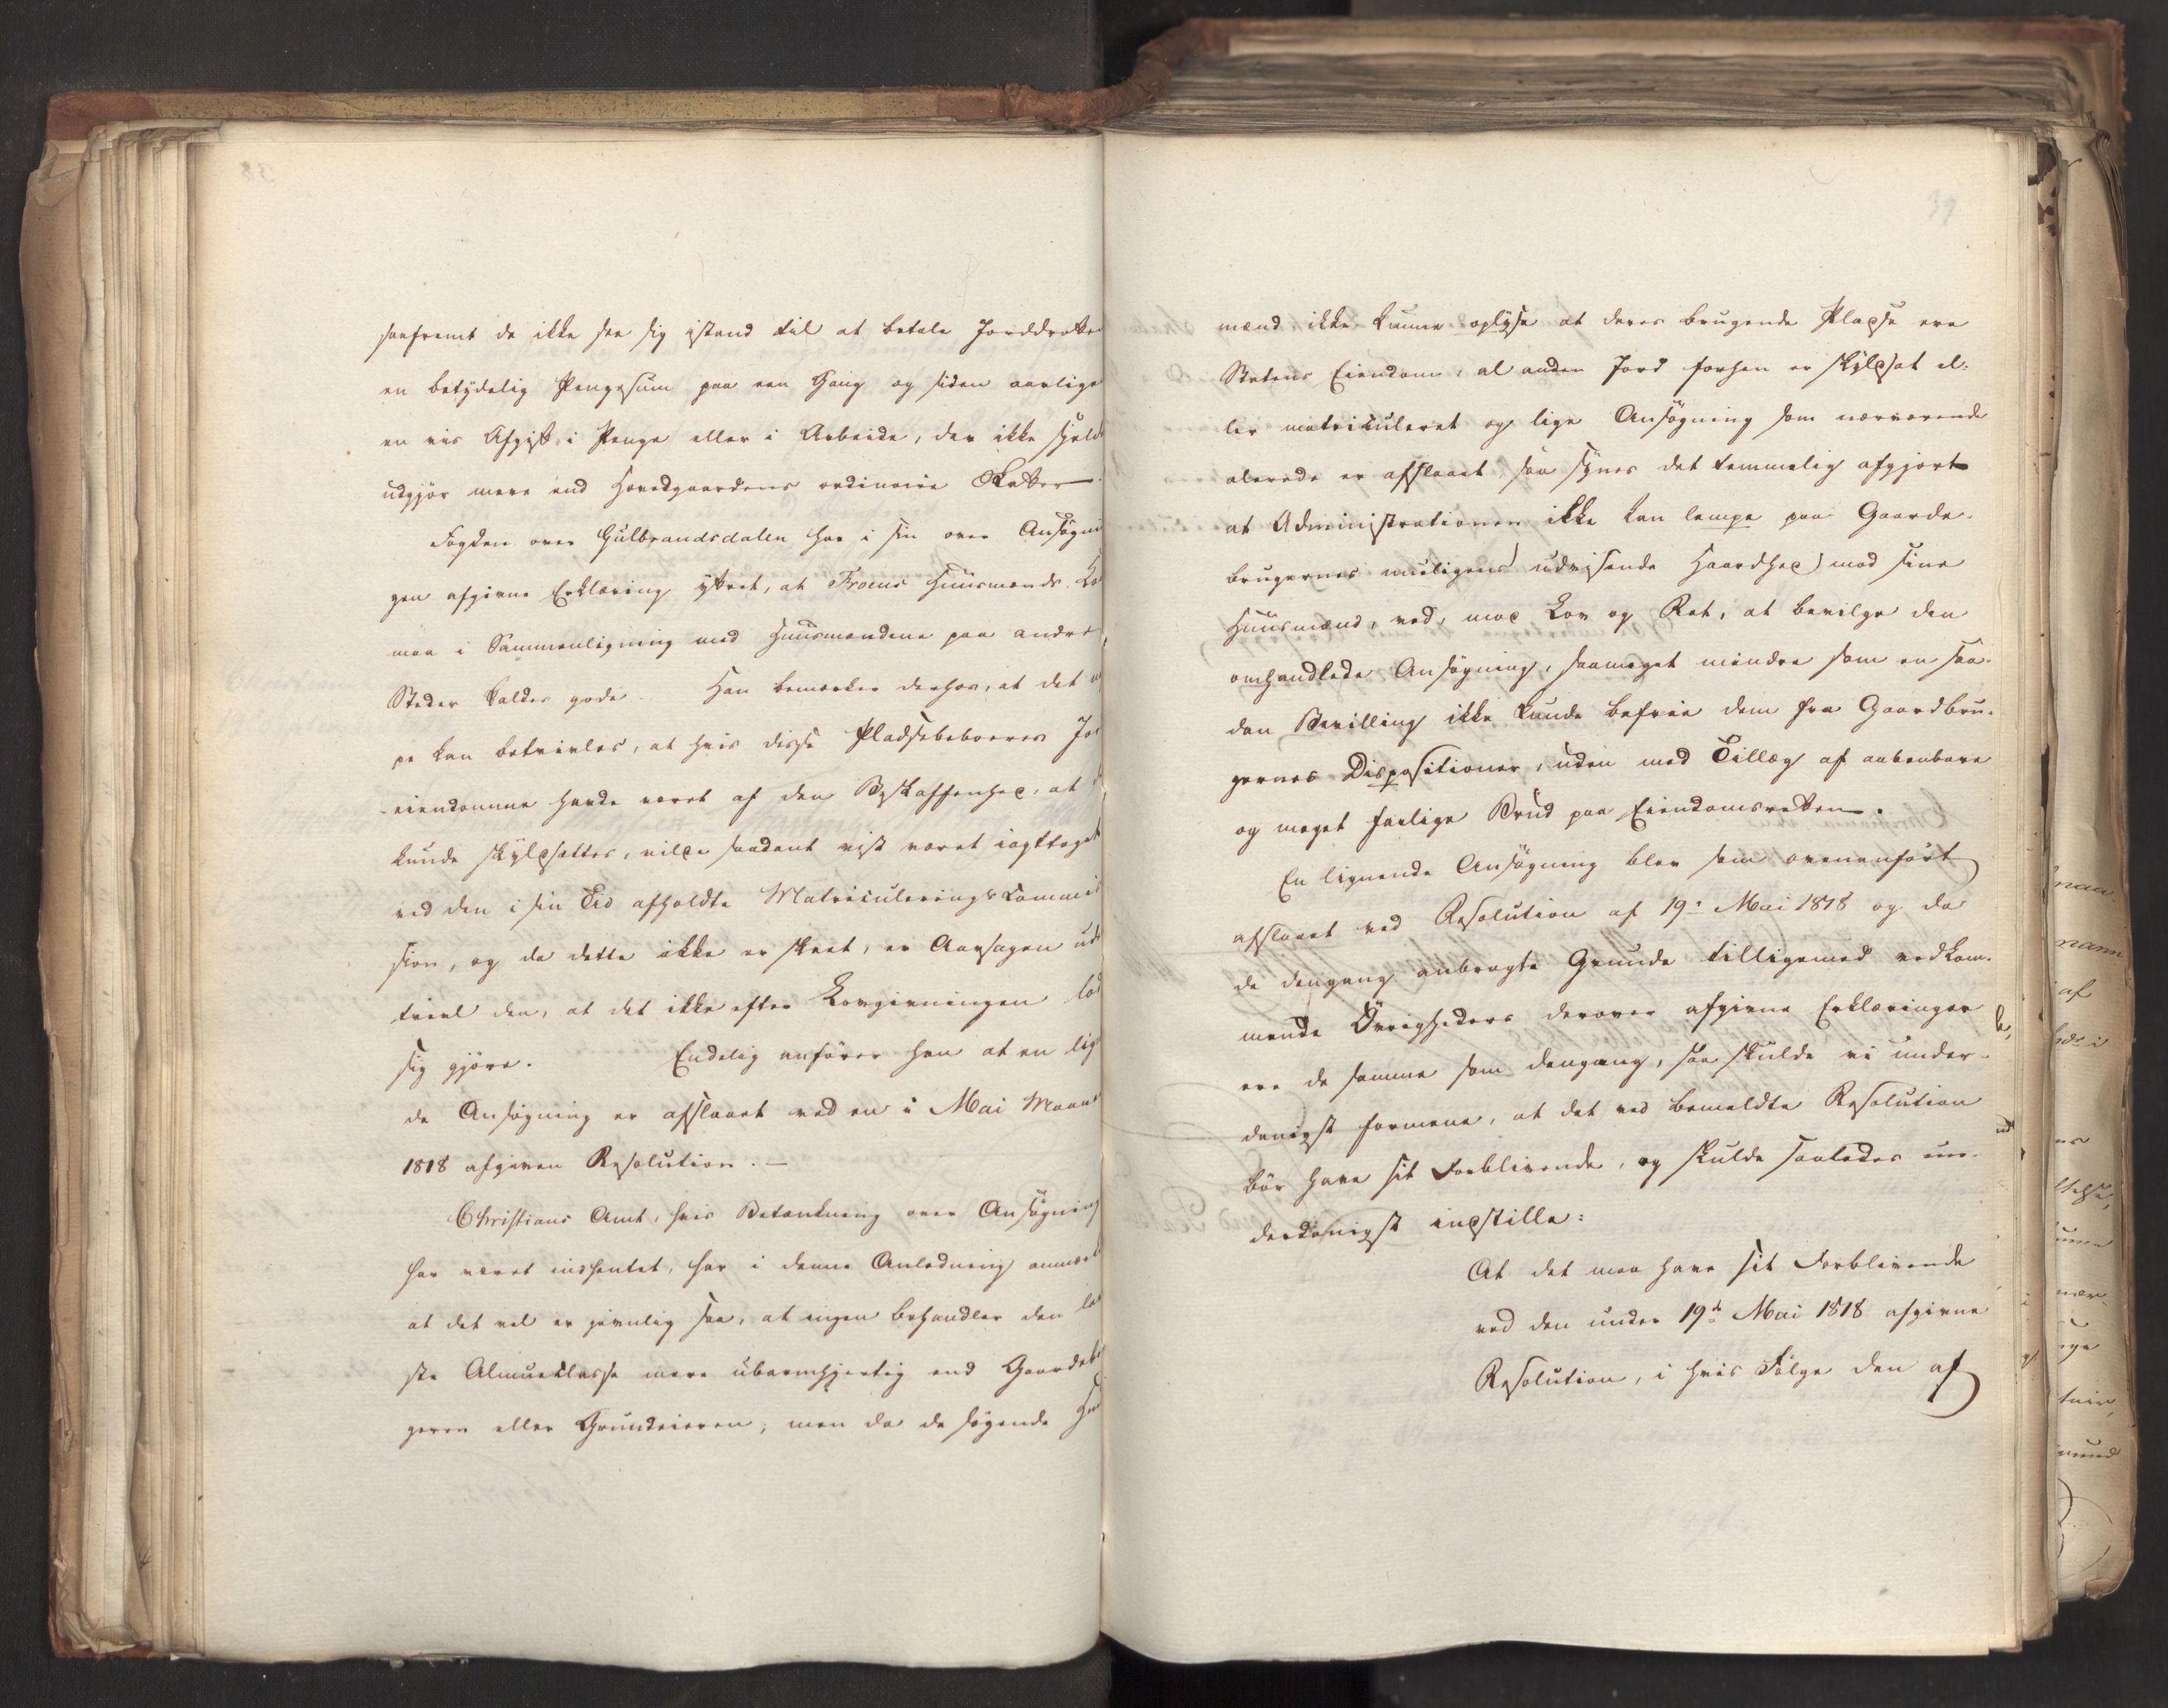 saafremt de ikke see sig istand til at betale Jorddrotte
en betydelig Pengesum paa een Gang og siden aarligen
en vis Afgift, i Penge eller i Arbeide, der ikke sjeld
udgjør mere end Hovedgaardens ordinaire Skatter.
Fogden over Gulbrandsdalen har i sin over Ansøgni
gen afgivne Erklæring yttret, at Froens Huusmænds Kaa
maa i Sammenligning med Huusmændene paa andre
Steder kaldes gode. Han bemærker derhos, at det ei
pe kan betvivles, at hvis disse Pladsebeboeres Jor
eiendomme havde været af den Beskaffenhed, at de
kunde skyldsættes, vilde saadant vist været iagttaget
ved den i sin Tid afholdte Matriculerings Commis
sion, og da dette ikke er skeet, er Aarsagen uden
tvivl den, at det ikke efter Lovgivningen lod
sig gjøre. Endelig anfører han at en lign
de Ansøgning er afslaaet ved en i Mai Maaned
1818 afgiven Resolution. —
Christians Amt, hvis Betænkning over Ansøgning
har været indhentet, har i denne Anledning anmærk
at det vel er jevnlig saa, at ingen behandler den la
ste Almueclasse mere ubarmhjertig end Gaardebr
geren eller Grundeieren; men da de søgende Huu
39
mænd ikke kunne oplyse at deres brugende Pladse ere
Statens Eiendom, al anden Jord forhen er skyldsat el-
ler matriculeret og lige Ansøgning som nærværende
allerede er afslaaet, saa synes det temmelig afgjort
at Administrationen ikke kan lempe paa Gaarde-
brugernes muligens udvisende Haardhed mod sine
Huusmænd, ved, mod Lov og Ret, at bevilge den
omhandlede Ansøgning, saameget mindre som en saa-
dan Bevilling ikke kunde befrie dem fra Gaardbru-
gernes Dispositioner, uden med Tillæg af aabenbare
og meget farlige Brud paa Eiendomsretten.
En lignende Ansøgning blev som ovenanført
afslaaet ved Resolution af 19. Mai 1818 og da
de dengang anbragte Grunde tilligemed vedkom-
mende Øvrigheders derover afgivne Erklæringer
ere de samme som dengang, saa skulde vi under-
danigst formene, at det ved bemeldte Resolution
bør have sit Forblivende, og skulde saaledes un-
derdanigst indstille:
At det maa have sit Forblivende
ved den under 19de Mai 1818 afgivne
Resolution, i hvis Følge den af